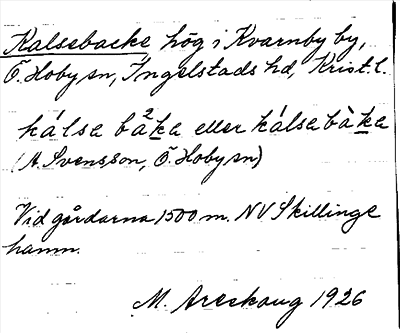 Kalsebacke hög i Kvarnby by,
Ö. Hoby sn, Ingelstads hd, Krist. l.
kálsa bà²ka eller kálsa bàka
(A. Svensson, Ö. Hoby sn)
Vid gårdarna 1500 m. NV Skillinge
hamn.
M. Areskoug 1926